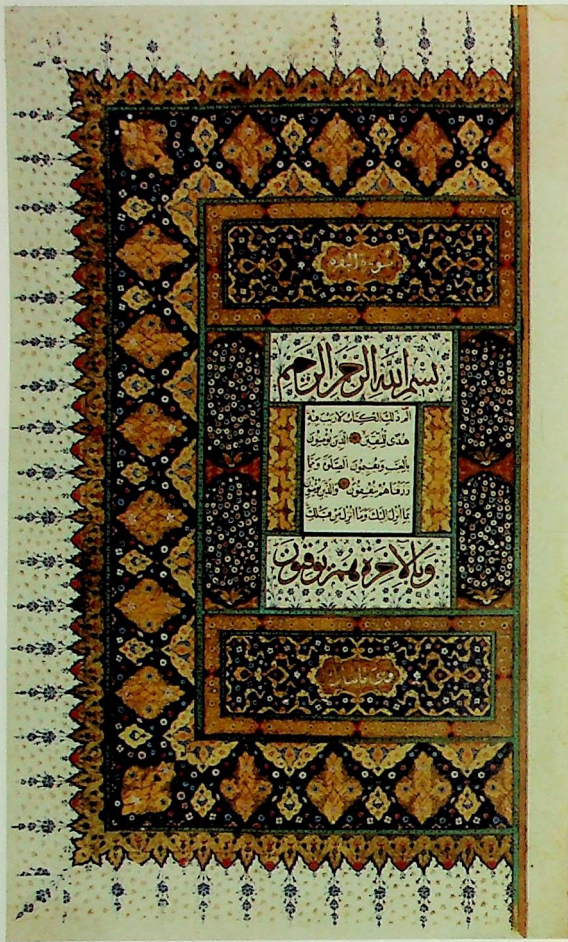 سورة البقرة
بسم الله الرحمن الرحيم
الم ذلك الكتاب لا ريب فيه
هدى للمتقين الذين يؤمنون
بالغيب ويقيمون الصلوة ومما
رزقناهم ينفقون والذين يؤمنون
بما انزل اليك وما انزل من قبلك
وبالاخرة هم يوقنون